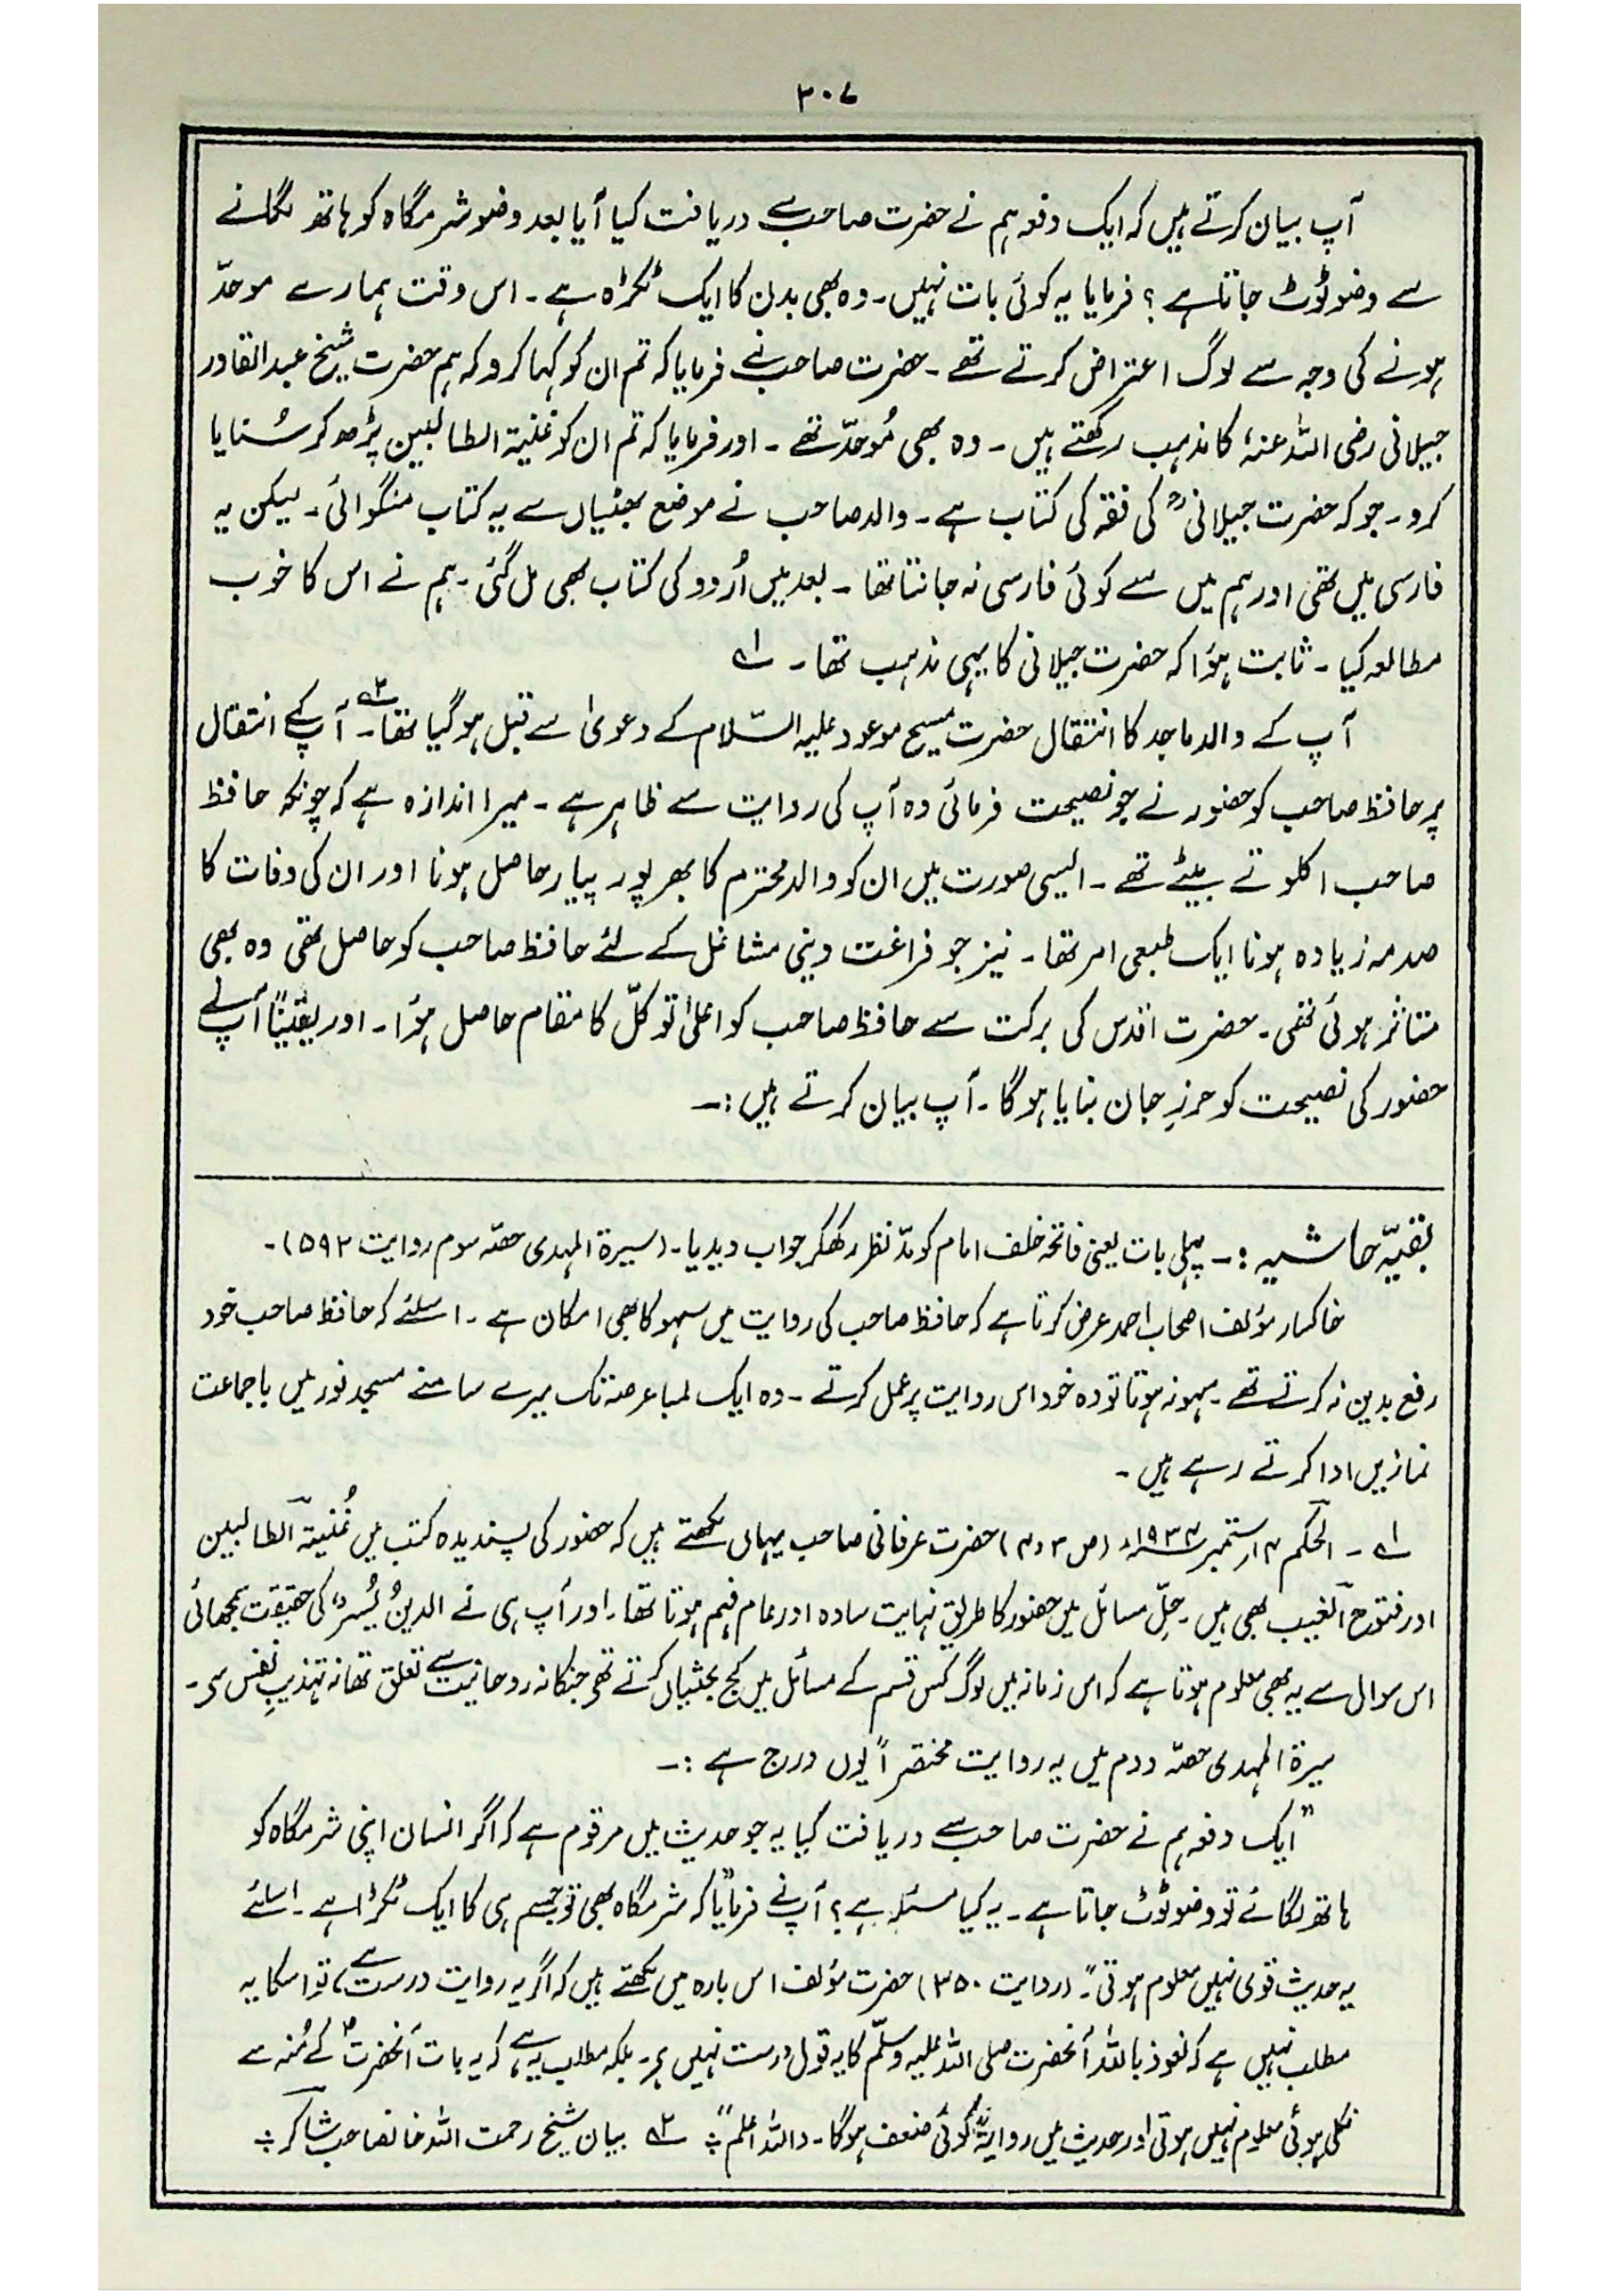 ۳۰۷
آپ بیان کرتے ہیں کہ ایک دفعہ ہم نے حضرت صاحب سے دریافت کیا آیا بعد وضو شرمگاہ کو ہاتھ لگانے
سے وضو ٹوٹ جاتا ہے ؟ فرمایا یہ کوئی بات نہیں۔ وہ بھی بدن کا ایک ٹکڑہ ہے۔ اس وقت ہمارے موحدّ
ہونے کی وجہ سے لوگ اعتراض کرتے تھے۔ حضرت صاحب نے فرمایا کہ تم ان کو کہا کرو کہ ہم حضرت شیخ عبدالقادر
جیلانی رضی اللہ عنہٗ کا مذہب رکھتے ہیں۔ وہ بھی مُوحدّ تھے۔ اور فرمایا کہ تم ان کو غنیۃ الطالبین پڑھ کر سُنایا
کرو۔ جو کہ حضرت جیلانی ؒ کی فقہ کی کتاب ہے۔ والد صاحب نے موضع بھٹیاں سے یہ کتاب منگوائی۔ لیکن یہ
فارسی میں تھی اور ہم میں سے کوئی فارسی نہ جانتا تھا۔ بعد میں اُردو کی کتاب بھی مل گئی۔ ہم نے اس کا خوب
مطالعہ کیا۔ ثابت ہؤا کہ حضرت جیلانی کا یہی مذہب تھا۔ ؎۱
آپ کے والد ماجد کا انتقال حضرت مسیح موعود علیہ السّلام کے دعویٰ سے قبل ہو گیا تھا۔؎۲ آپ کے انتقال
پر حافظ صاحب کو حضور نے جو نصیحت فرمائی وہ آپ کی روایت سے ظاہر ہے۔ میرا اندازہ ہے کہ چونکہ حافظ
صاحب اکلوتے بیٹے تھے۔ ایسی صورت میں ان کو والد محترم کا بھرپور پیار حاصل ہونا اور ان کی وفات کا
صدمہ زیادہ ہونا ایک طبعی امر تھا۔ نیز جو فراغت دینی مشاغل کے لئے حافظ صاحب کو حاصل تھی وہ بھی
متاثر ہوئی تھی۔ حضرت اقدس کی برکت سے حافظ صاحب کو اعلیٰ توکلّ کا مقام حاصل ہؤا۔ اور یقیناً آپ نے
حضور کی نصیحت کو حرزِ جان بنایا ہوگا۔ آپ بیان کرتے ہیں :۔
بقیّہ حاشیہ :۔ پہلی بات یعنی فاتحہ خلف امام کو مدّ نظر رکھکر جواب دیدیا۔ (سیرۃ المہدی حصّہ سوم روایت ۵۹۲)۔
خاکسار مؤلف اصحاب احمد عرض کرتا ہے کہ حافظ صاحب کی روایت میں سہو کا بھی امکان ہے۔ اسلئے کہ حافظ صاحب خود
رفع یدین نہ کرتے تھے۔ سہو نہ ہوتا تو وہ خود اس روایت پر عمل کرتے۔ وہ ایک لمبا عرصہ تک میرے سامنے مسجد نور میں باجماعت
نمازیں ادا کرتے رہے ہیں۔
؎۱ ۔ الحکم ۱۴ ستمبر ۱۹۳۴ء (ص ۳ و ۴) حضرت عرفانی صاحب یہاں لکھتے ہیں کہ حضور کی پسندیدہ کتب میں غُنیۃ الطالبین
اور فتوح الغیب بھی ہیں۔ حلِّ مسائل میں حضور کا طریق نہایت سادہ اور عام فہم ہوتا تھا۔ اور آپ ہی نے الدینُ یُسر کی حقیقت سمجھائی
اس سوال سے یہ بھی معلوم ہوتا ہے کہ اس زمانہ میں لوگ کس قسم کے مسائل میں کج بحثیاں کرتے تھے جنکا نہ روحانیت سے تعلق تھا نہ تہذیبِ نفس سے۔
سیرۃ المہدی حصّہ دوم میں یہ روایت مختصراً یوں درج ہے :۔
"ایک دفعہ ہم نے حضرت صاحب سے دریافت کیا یہ جو حدیث میں مرقوم ہے کہ اگر انسان اپنی شرمگاہ کو
ہاتھ لگائے تو وضو ٹوٹ جاتا ہے۔ یہ کیا مسئلہ ہے ؟ آپ نے فرمایا کہ شرمگاہ بھی تو جسم ہی کا ایک ٹکڑا ہے۔ اسلئے
یہ حدیث قوی نہیں معلوم ہوتی"۔ (روایت ۳۵۰) حضرت مؤلف اس بارہ میں لکھتے ہیں کہ اگر یہ روایت درست ہے، تو اسکا یہ
مطلب نہیں ہے کہ نعوذ باللہ آنحضرت صلی اللہ علیہ وسلّم کا یہ قول درست نہیں ہے۔ بلکہ مطلب یہ ہے کہ یہ بات آنحضرت ؐ کے مُنہ سے
نکلی ہوئی معلوم نہیں ہوتی اور حدیث میں روایۃً کوئی ضعف ہوگا۔ واللہ اعلم"؛ ؎۲ بیان شیخ رحمت اللہ خانصاحب شاکر ؛